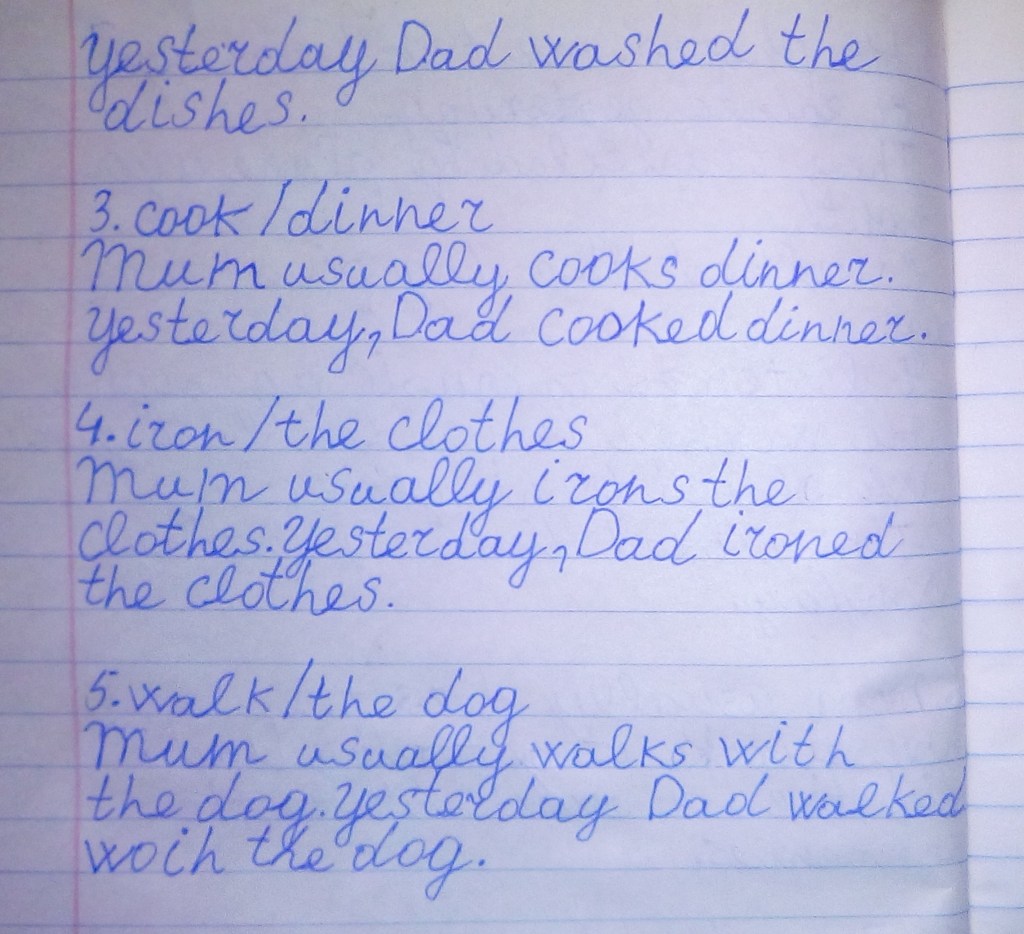 Yesterday Dad washed the
dishes.
3. cook/dinner
Mum usually cooks dinner.
Yesterday, Dad cooked dinner.
4. iron/the clothes
Mum usually irons the
clothes. Yesterday, Dad ironed
the clothes.
5. walk/the dog
Mum usually walks with
the dog. Yesterday Dad walked
woih the dog.